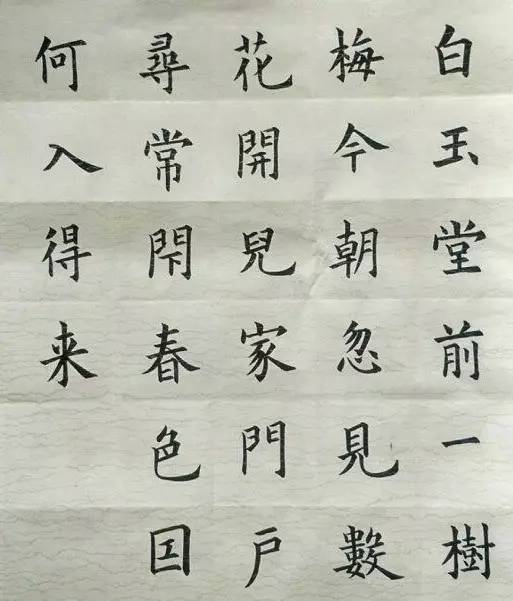 白玉堂前一樹
梅今朝忽見數
花開兒家門戶
尋常閇春色囙
何入得来